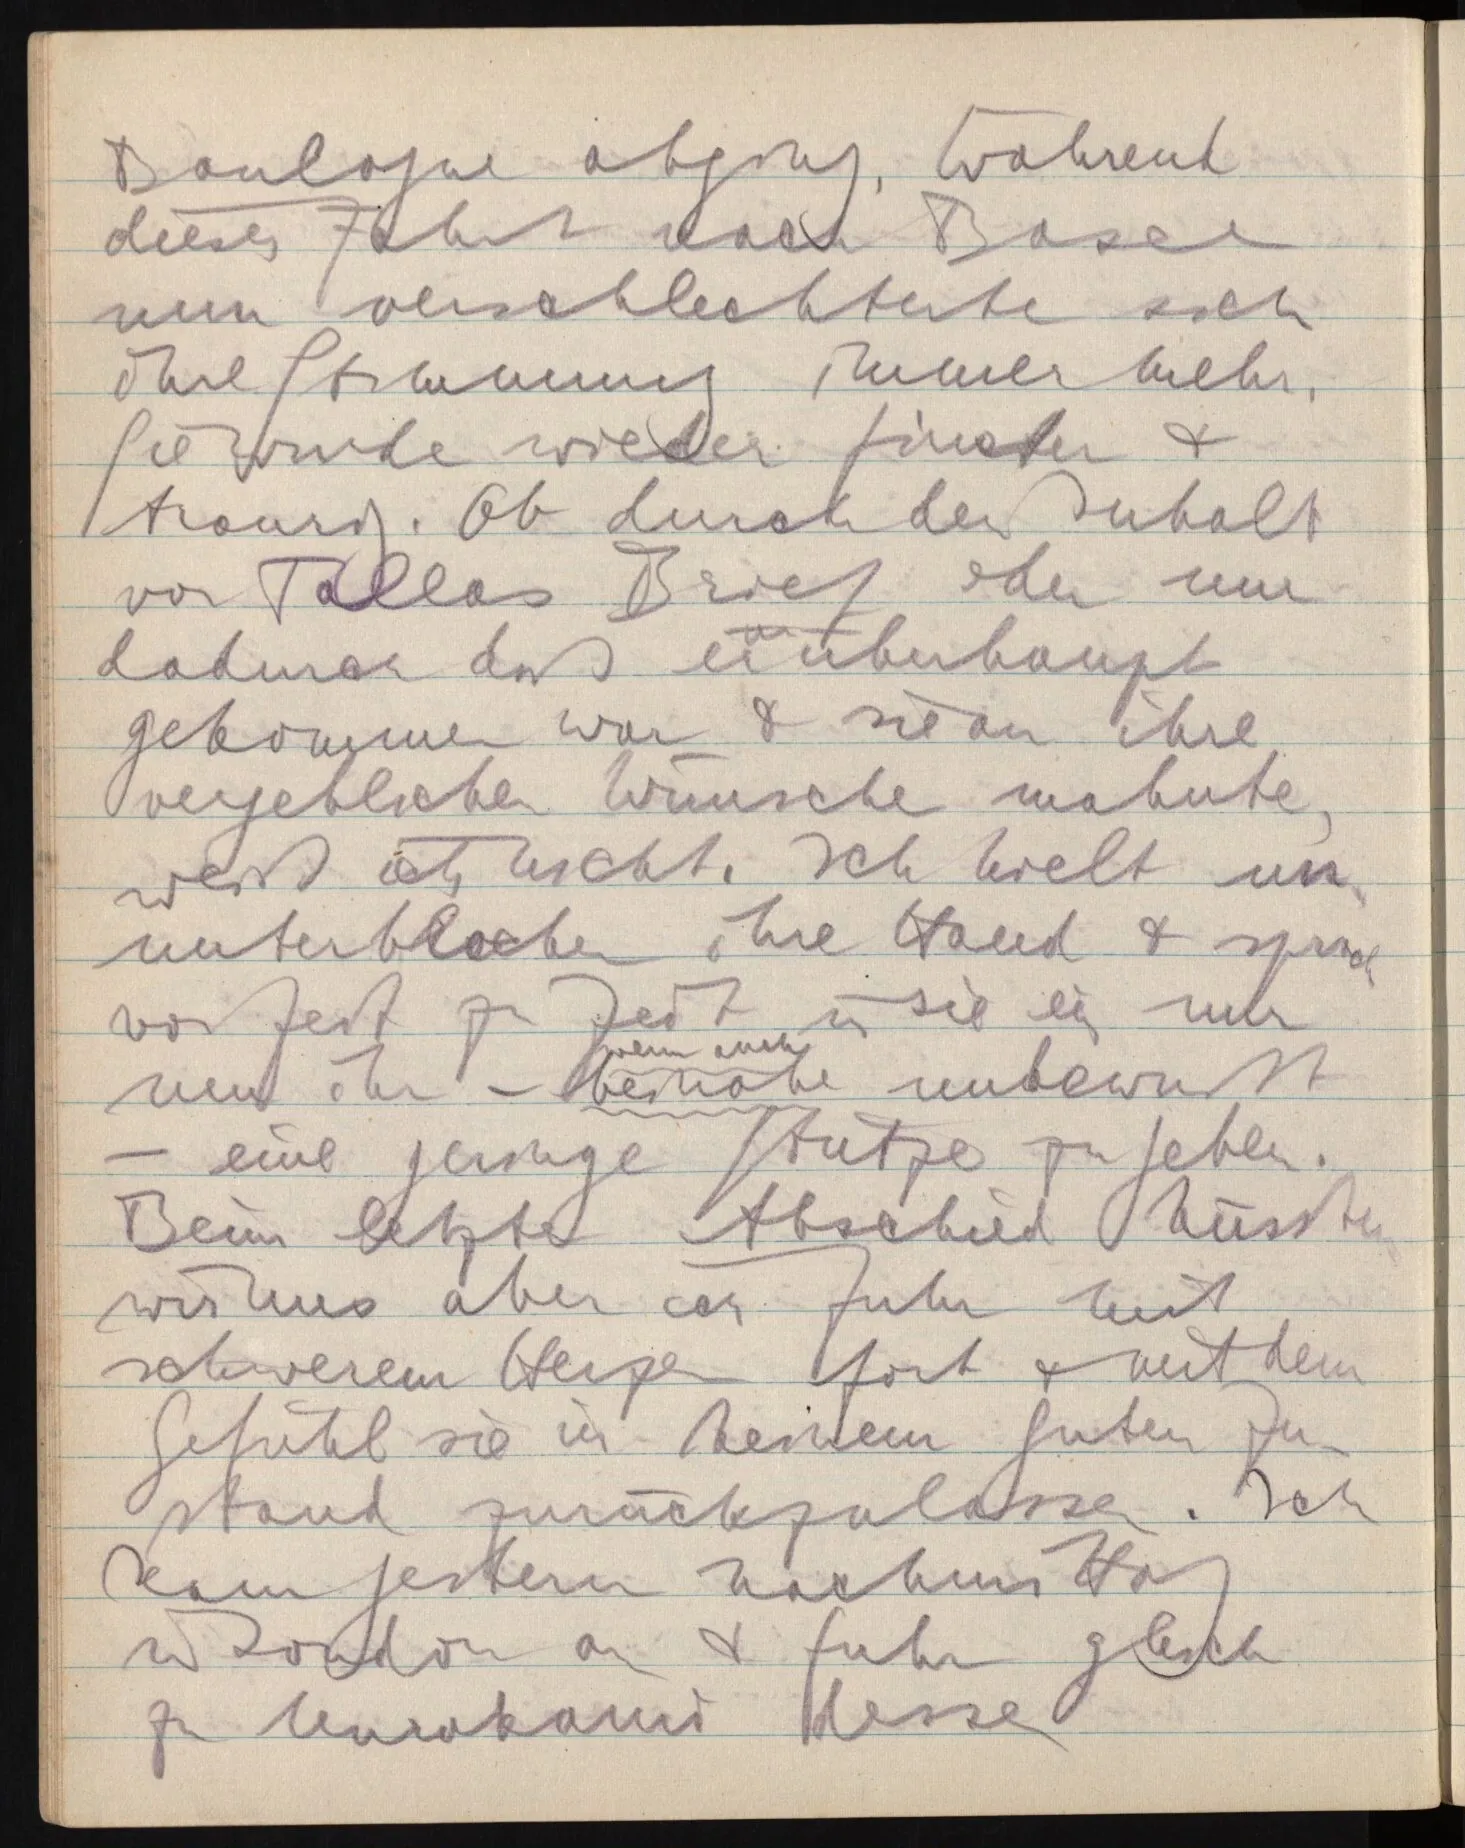 Boulogne abging. Während
dieser Fahrt nach Basel
nun verschlechterte sich
ihre Stimmung immer mehr.
Sie wurde wieder finster &
traurig. Ob durch den Inhalt
von Tallas Brief oder nur
dadurch daß er überhaupt
gekommen war & sie an ihre
vergeblichen Wünsche mahnte,
weiß ich nicht. Ich hielt un-
unterbrochen ihre Hand & sprach
von Zeit zu Zeit in sie ein um
nun ihr –
wenn auch
beinahe unbewußt
– eine geringe Stütze zu geben.
Beim letzten Abschied küssten
wir uns aber ich fuhr mit
schwerem Herzen fort & mit dem
Gefühl sie in keinem guten Zu-
stand zurückzulassen. Ich
kam gestern nachmittag
in London an & fuhr gleich
zu Murakami dessen